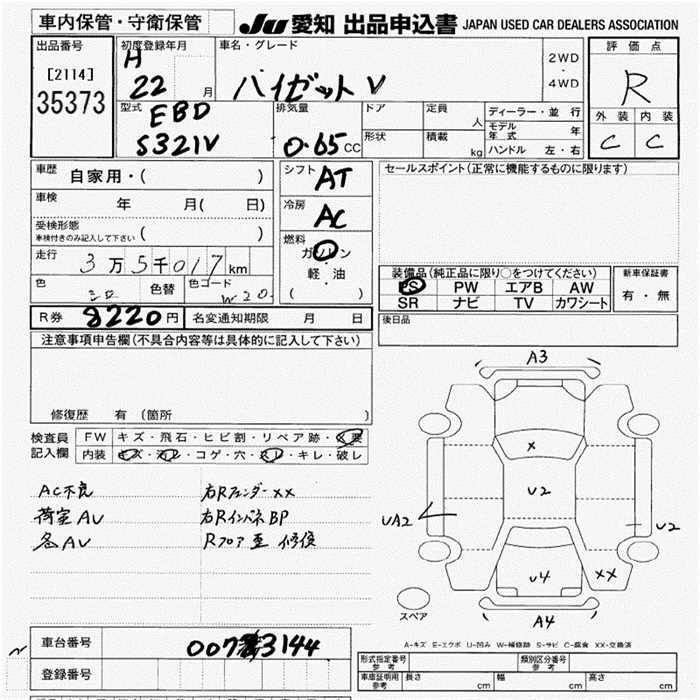 車内保管・守衛保管
JU 愛知 出品申込書 JAPAN USED CAR DEALERS ASSOCIATION
出品番号
[2114]
35373
初度登録年月
H
22 月
車名・グレード
ハイゼットV
2WD
・
4WD
評価点
R
外装 内装
C C
型式
EBD
S321V
排気量
0.65 CC
ドア
形状
定員
人
積載
kg
ディーラー・並 行
モデル年式 年
ハンドル 左・右
車歴
自家用・( )
車検 年 月( 日)
受検形態
車検付きのみ記入して下さい ( )
走行 3万5千017km
色 シロ 色替 色コード W20
シフト AT
冷房 AC
燃料
ガソリン
・
軽 油
( )
セールスポイント(正常に機能するものに限ります)
装備品(純正品に限り○をつけてください)
PS PW エアB AW
SR ナビ TV カワシート
新車保証書
有・無
後日品
R券 8220円 名変通知期限 月 日
注意事項申告欄(不具合内容等は具体的に記入して下さい)
修復歴 有 (箇所 )
検査員
記入欄
FW キズ・飛石・ヒビ割・リペア跡・X要
内装 キズ・汚レ・コゲ・穴・スレ・キレ・破レ
AC不良 右Rフェンダー XX
荷室AU 右RインパネBP
各AU Rフロア歪 修復
A3
X
U2
UA2
U2
U4
XX
スペア
A4
A-キズ E-エクボ U-凹み W-補修跡 S-サビ C-腐食 XX-交換済
車台番号 0073144
登録番号
形式指定番号
参考
類別区分番号
参考
車庫証明用
参考
長さ cm 幅 cm 高さ cm